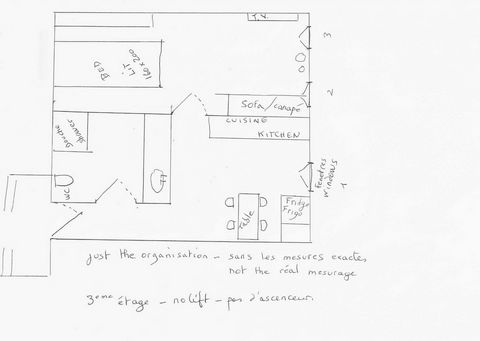 T.V.
3
BED
LIT
160 x 200
2
Sofa/canapé
CUISINE
KITCHEN
douche
shower
WC
Fenetres
windows
1
Fridge
Frigo
Table
just the organisation - sans les mesures exactes
not the réal mesurage
3eme étage - no lift - pas d'ascenceur.